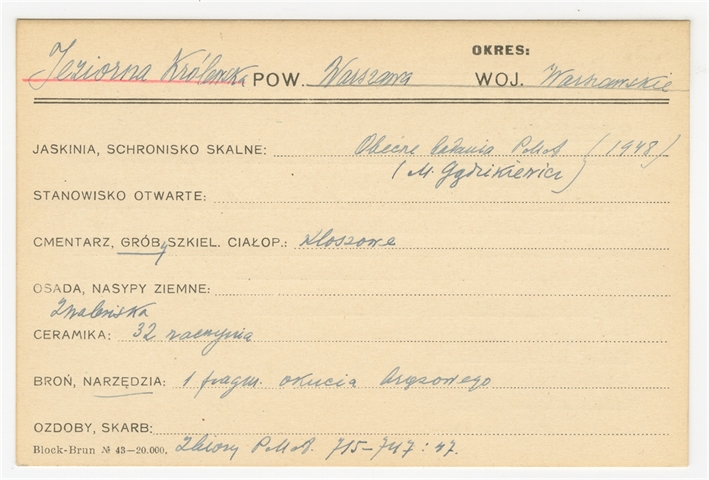 OKRES:
Jeziorna Królewska POW. Warszawa WOJ. Warszawskie
JASKINIA, SCHRONISKO SKALNE: Obecne badania P.M.A (1948)
(M. Gądzikiewicz)
STANOWISKO OTWARTE:
CMENTARZ, GRÓBy SZKIEL. CIAŁOP.: kloszowe
OSADA, NASYPY ZIEMNE:
Znaleziska
CERAMIKA: 32 naczynia
BROŃ, NARZĘDZIA: 1 fragm. okucia brązowego
OZDOBY, SKARB:
Block-Brun № 43—20.000. Zbiory P.M.A. 715-747:47.